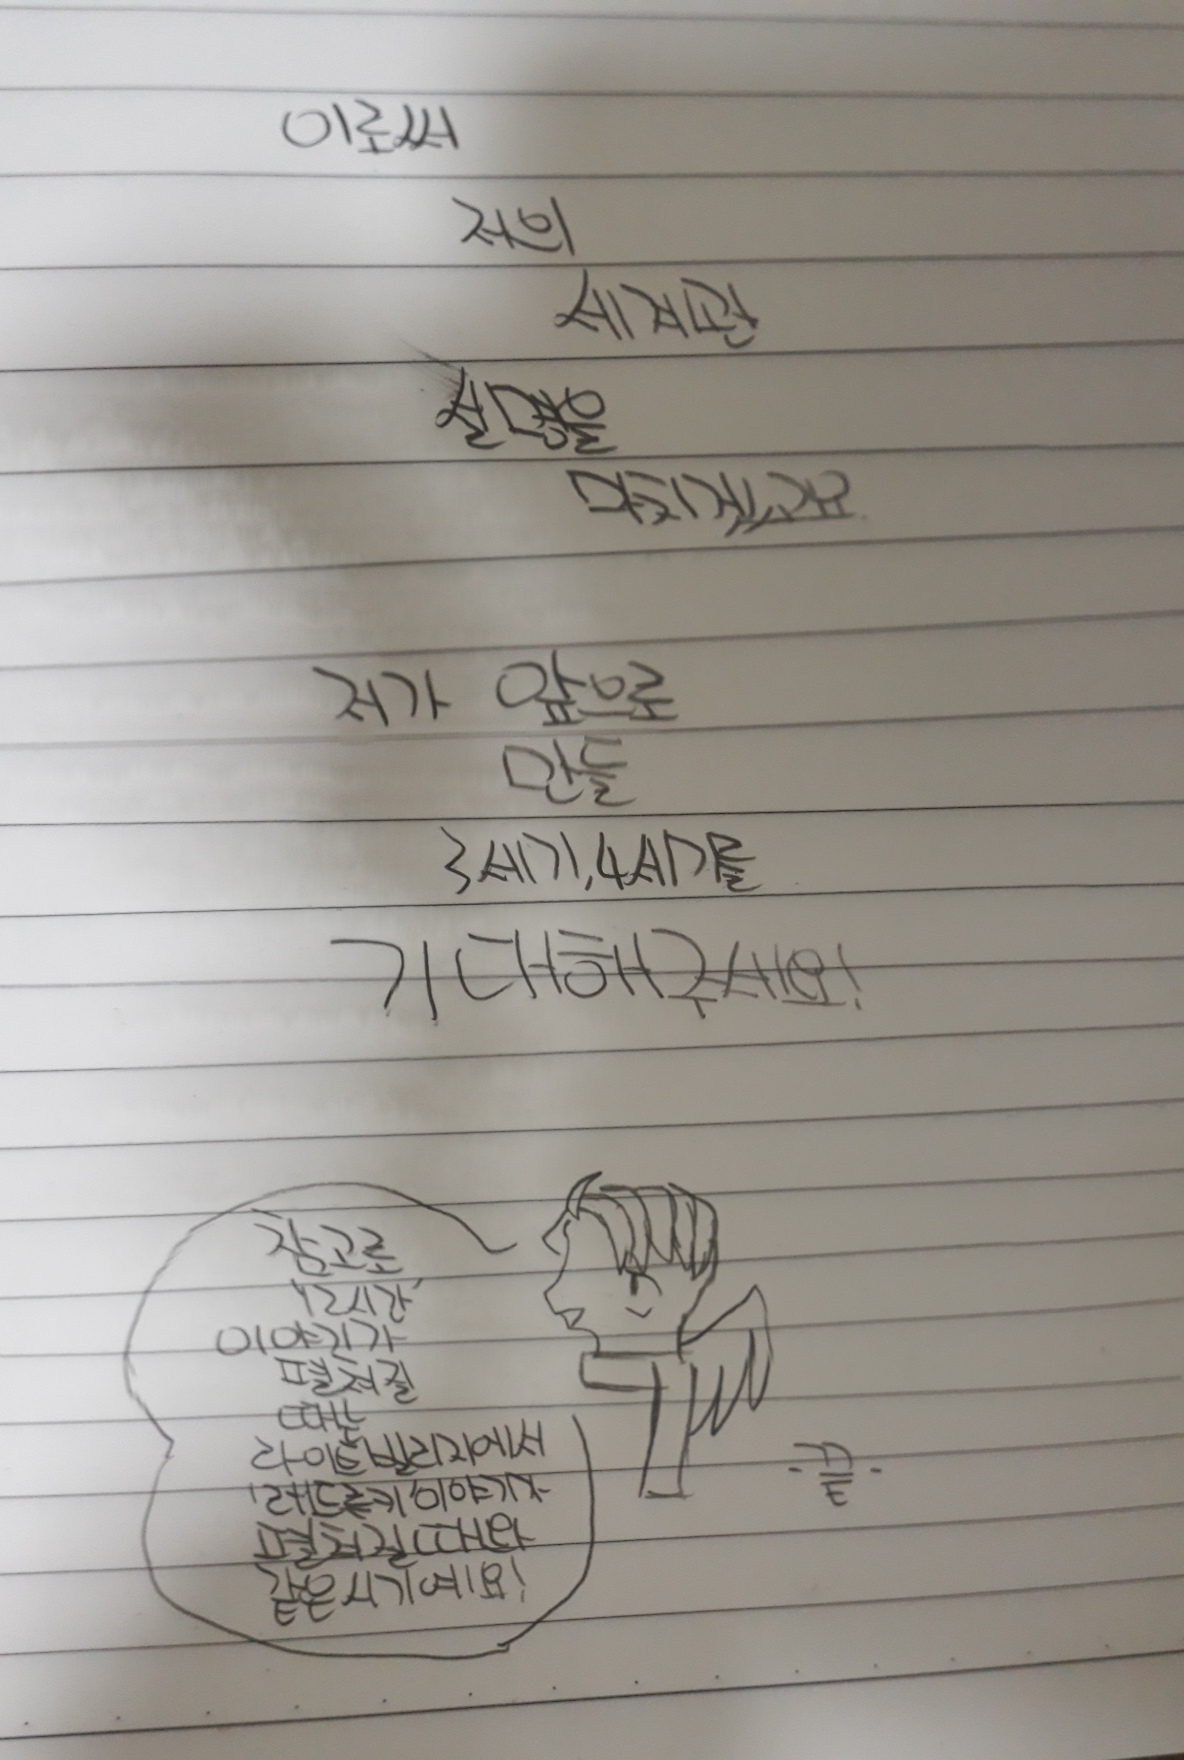 이로써
저의
세계관
설명을
마치겠고요
저가 앞으로
만들
3세기,4세기를
기대해주세요!
참고로
'12시간'
이야기가
펼쳐질
때는
라이트빌리지에서
'레드로키'이야기가
펼쳐질때와
같은시기예요!
-끝-